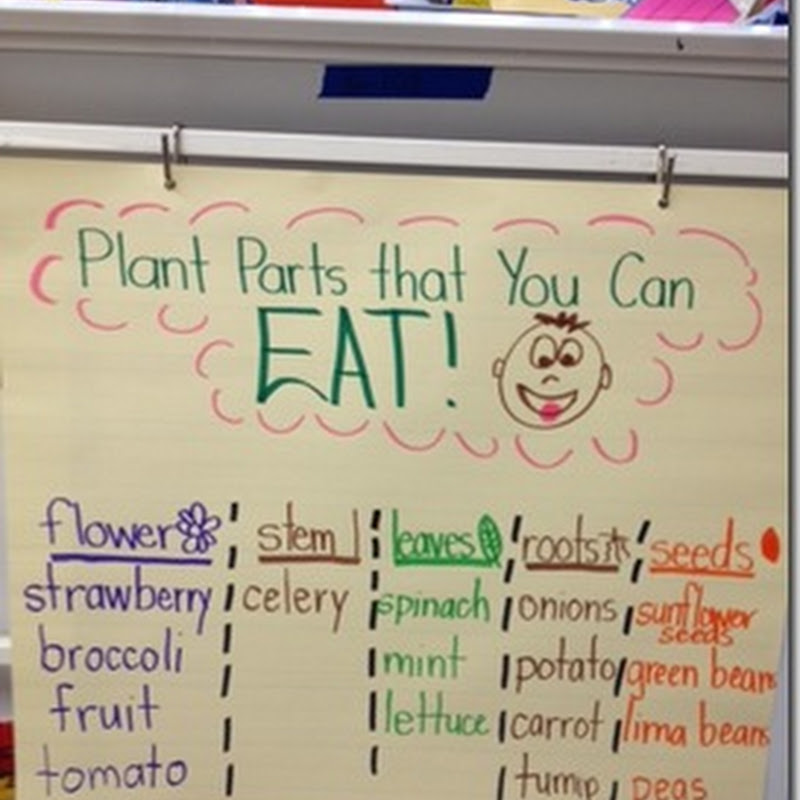 Plant Parts that You Can
EAT!
flower stem leaves roots seeds
strawberry celery spinach onions sunflower
seeds
broccoli mint potato green beans
fruit lettuce carrot lima beans
tomato turnip peas